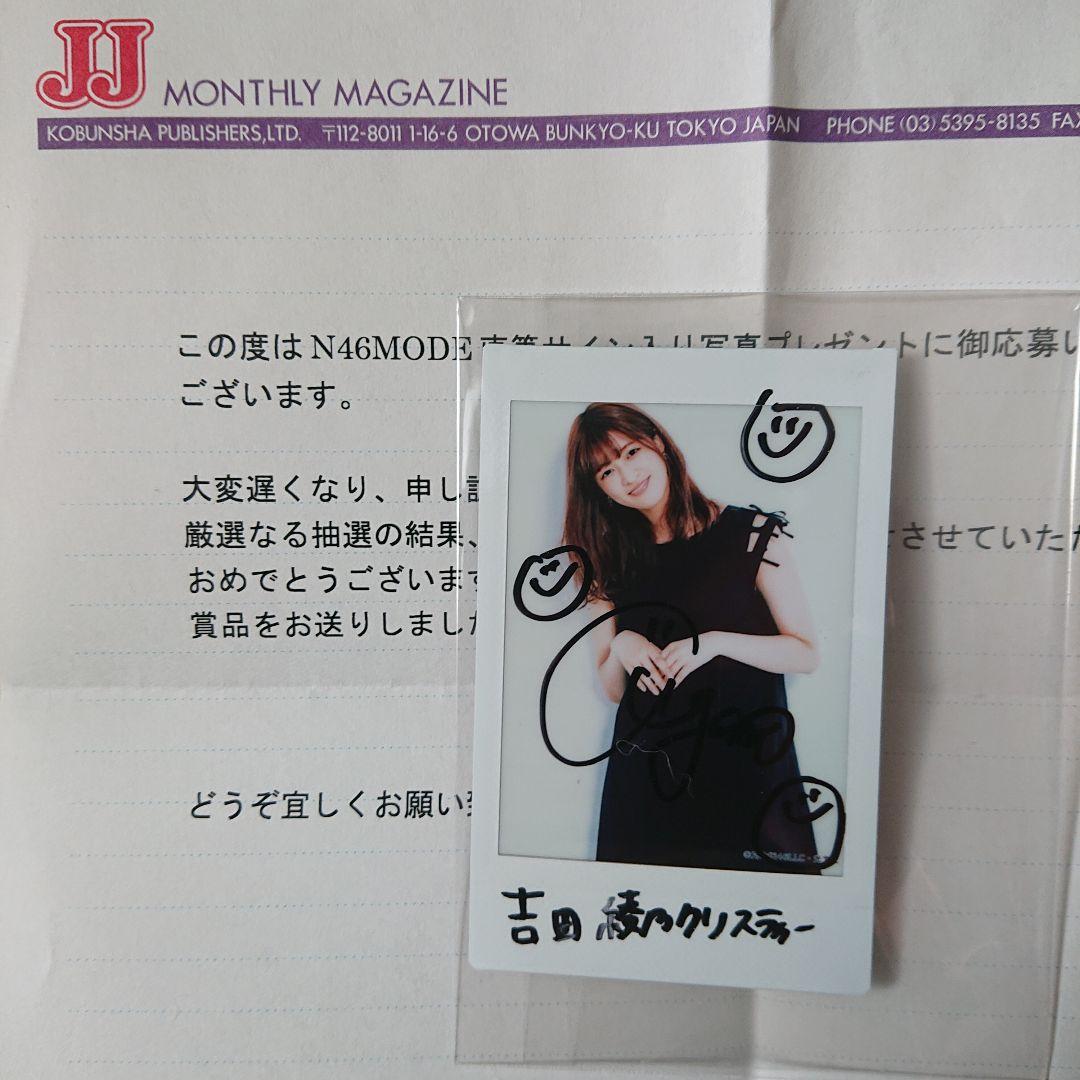 JJ MONTHLY MAGAZINE
KOBUNSHA PUBLISHERS,LTD. 〒112-8011 1-16-6 OTOWA BUNKYO-KU TOKYO JAPAN PHONE (03) 5395-8135 FAX
この度はN46MODE直筆サイン入り写真プレゼントに御応募い
ございます。
大変遅くなり、申し訳
厳選なる抽選の結果、
させていただ
おめでとうございます
賞品をお送りしました
どうぞ宜しくお願い致
吉田 綾乃クリスティー